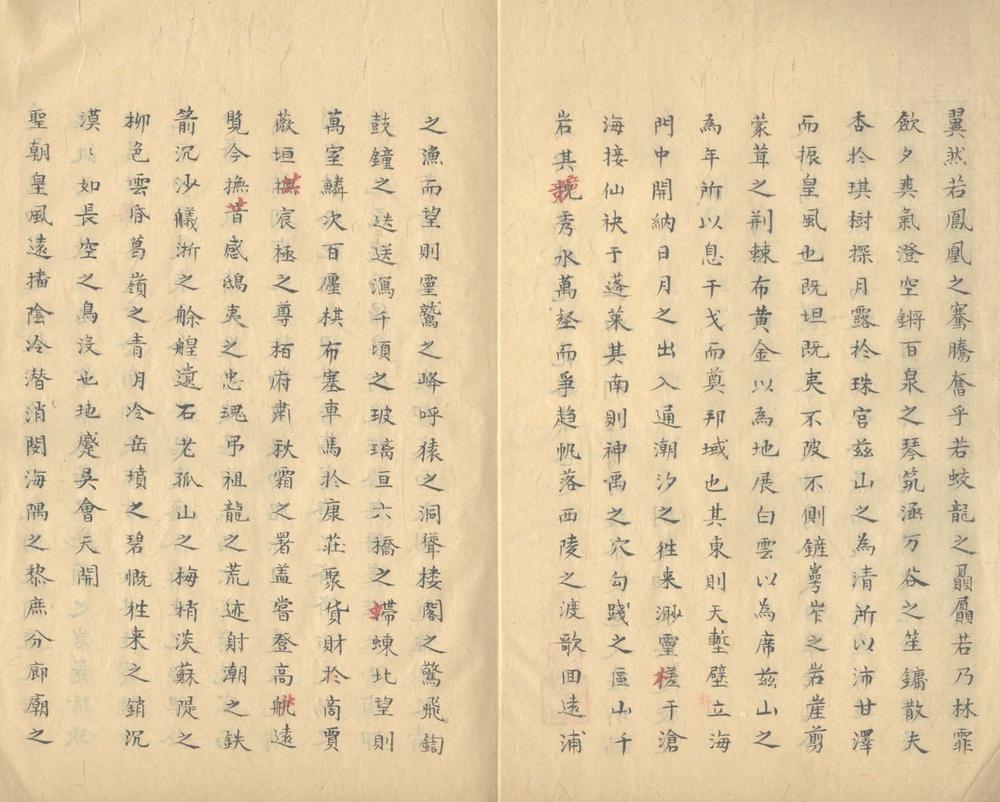 翼然若鳳凰之騫騰奮乎若蛟龍之贔屭若乃林霏
飲夕爽氣澄空鏘百泉之琴筑涵万谷之笙鏞散天
香扵琪樹探月露扵珠宮兹山之為清所以沛甘澤
而振皇風也既坦既夷不陂不側鏟嶴岝之岩崖剪
蒙茸之荆棘布黄金以為地展白雲以為席兹山之
為年所以息干戈而奠邦域也其東則天塹壁立海
門中開納日月之出入通潮汐之徃来渺靈槎于滄
海接仙袂于蓬莱其南則神禹之穴勾踐之區山千
岩其秀水萬壑而爭趋帆落西陵之渡歌回遠浦
之漁而望則靈鷲之峰呼猿之洞聳楼閣之驚飛鍧
鼓鐘之迭送瀉千頃之玻璃亘六橋之蝃蝀北望則
萬室鱗次百廛棋布塞車馬扵康莊聚貨財扵啇賈
巍垣拱宸極之尊栢府肅秋霜之署盖嘗登高眺遠
覧今撫昔感鴟夷之忠魂吊祖龍之荒迹射潮之鉄
箭沉沙艤浙之艅艎遺石老孤山之梅梢淡蘇隄之
柳色雲昏葛嶺之青月冷岳墳之碧慨徃来之銷沉
漠〻如長空之鳥没也地蹙吳會天開
聖朝皇風遠播陰冷潜消閔海隅之黎庶分廊廟之